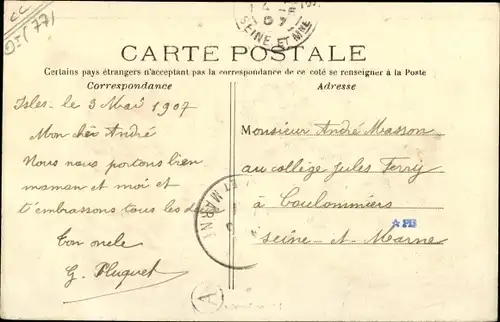 CC
OI (77)
SEINE ET MNE
CARTE POSTALE
Certains pays étrangers n'acceptant pas la correspondance de ce coté se renseigner à la Poste
Correspondance
Adresse
Isles. le 3 Mai 1907
Mon cher André
Nous nous portons bien
maman et moi et
t'embrassons tous les deux
Ton oncle
G. Pluquet
Monsieur André Masson
au collège Jules Ferry
à Coulommiers
Seine-et-Marne
ET MARNE
A